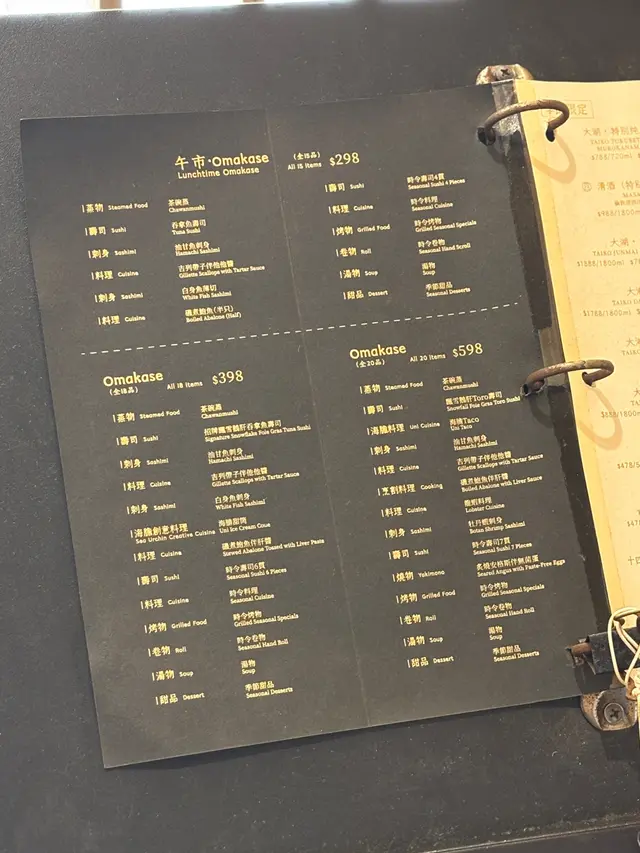 午市·Omakase
Lunchtime Omakase
(全15品)
All 15 items $298
蒸物 Steamed Food 茶碗蒸
Chawanmushi
壽司 Sushi 吞拿魚壽司
Tuna Sushi
刺身 Sashimi 油甘魚刺身
Hamachi Sashimi
料理 Cuisine 吉列帶子伴他他醬
Gillette Scallops with Tartar Sauce
刺身 Sashimi 白身魚薄切
White Fish Sashimi
料理 Cuisine 磯煮鮑魚(半只)
Boiled Abalone (Half)
壽司 Sushi 時令壽司4貫
Seasonal Sushi 4 Pieces
料理 Cuisine 時令料理
Seasonal Cuisine
烤物 Grilled Food 時令烤物
Grilled Seasonal Specials
卷物 Roll 時令卷物
Seasonal Hand Scroll
湯物 Soup 湯物
Soup
甜品 Dessert 季節甜品
Seasonal Desserts
Omakase
(全18品)
All 18 items $398
蒸物 Steamed Food 茶碗蒸
Chawanmushi
壽司 Sushi 招牌飄雪鵝肝吞拿魚壽司
Signature Snowflake Fois Gras Tuna Sushi
刺身 Sashimi 油甘魚刺身
Hamachi Sashimi
料理 Cuisine 吉列帶子伴他他醬
Gillette Scallops with Tartar Sauce
刺身 Sashimi 白身魚刺身
White Fish Sashimi
海膽創意料理
Sea Urchin Creative Cuisine 海膽甜筒
Uni Ice Cream Cone
料理 Cuisine 磯煮鮑魚伴肝醬
Stewed Abalone Tossed with Liver Paste
壽司 Sushi 時令壽司6貫
Seasonal Sushi 6 Pieces
料理 Cuisine 時令料理
Seasonal Cuisine
烤物 Grilled Food 時令烤物
Grilled Seasonal Specials
卷物 Roll 時令卷物
Seasonal Hand Roll
湯物 Soup 湯物
Soup
甜品 Dessert 季節甜品
Seasonal Desserts
Omakase
(全20品)
All 20 items $598
蒸物 Steamed Food 茶碗蒸
Chawanmushi
壽司 Sushi 飄雪鵝肝Toro壽司
Snowfall Fois Gras Toro Sushi
海膽料理 Uni Cuisine 海膽Taco
Uni Taco
刺身 Sashimi 油甘魚刺身
Hamachi Sashimi
料理 Cuisine 吉列帶子伴他他醬
Gillette Scallops with Tartar Sauce
烹割料理 Cooking 磯煮鮑魚伴肝醬
Boiled Abalone with Liver Sauce
料理 Cuisine 龍蝦料理
Lobster Cuisine
刺身 Sashimi 牡丹蝦刺身
Botan Shrimp Sashimi
壽司 Sushi 時令壽司7貫
Seasonal Sushi 7 Pieces
燒物 Yakimono 炙燒安格斯伴無菌蛋
Seared Angus with Paste-Free Eggs
烤物 Grilled Food 時令烤物
Grilled Seasonal Specials
卷物 Roll 時令卷物
Seasonal Hand Roll
湯物 Soup 湯物
Soup
甜品 Dessert 季節甜品
Seasonal Desserts
限定
大湖·特別純
$788/720ml
清酒 (特別
$988/1800ml
大湖·
TAIKO JUNMAI
$1888/1800ml
大
$1788/1800ml
大
$888/1800ml